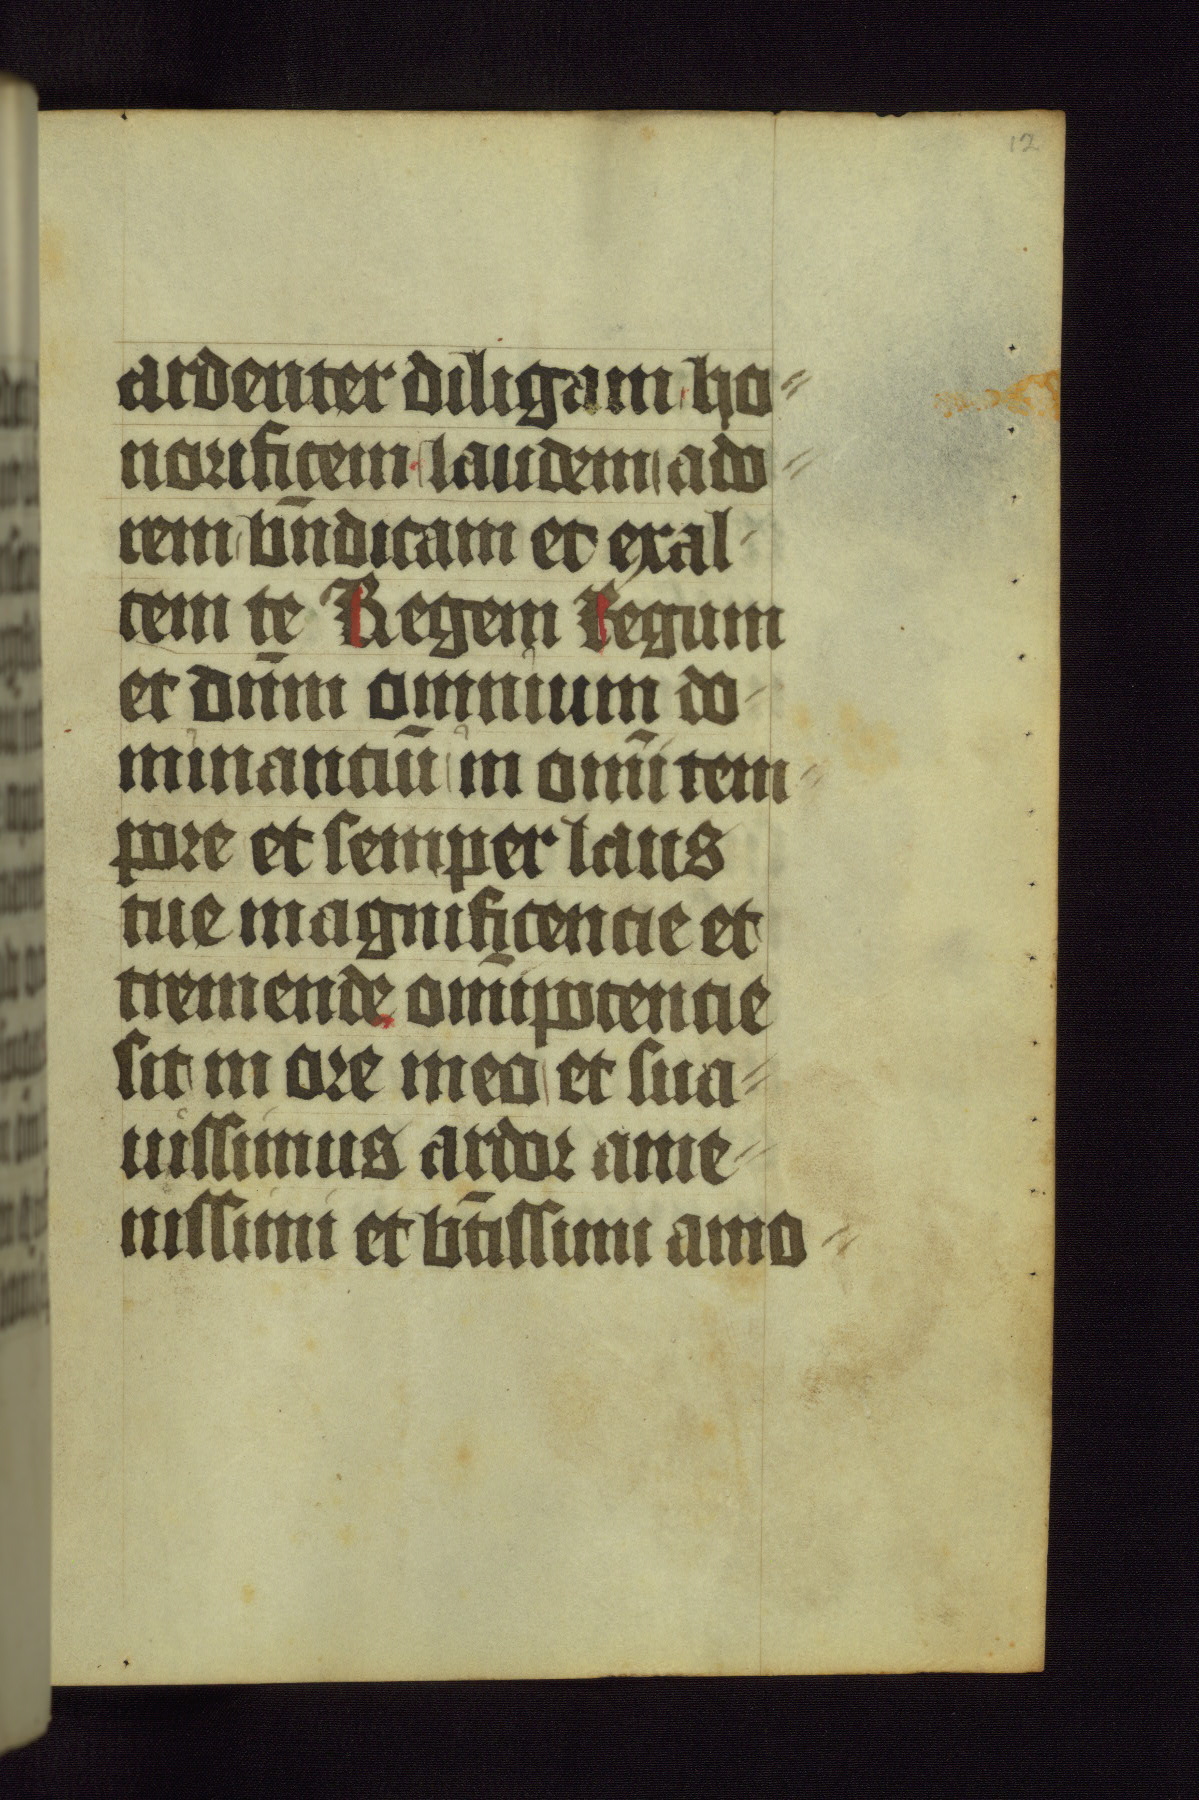 12
ardenter diligam ho-
norificem laudem ado-
rem bn̄dicam et exal-
tem te Regem Regum
et dn̄m omnium do-
minanciū in omī tem-
pore et semper laus
tue magnificencie et
tremende omīpotencie
sit in ore meo et sua-
uissimus ardor ame-
nissimi et bt̄issimi amo-